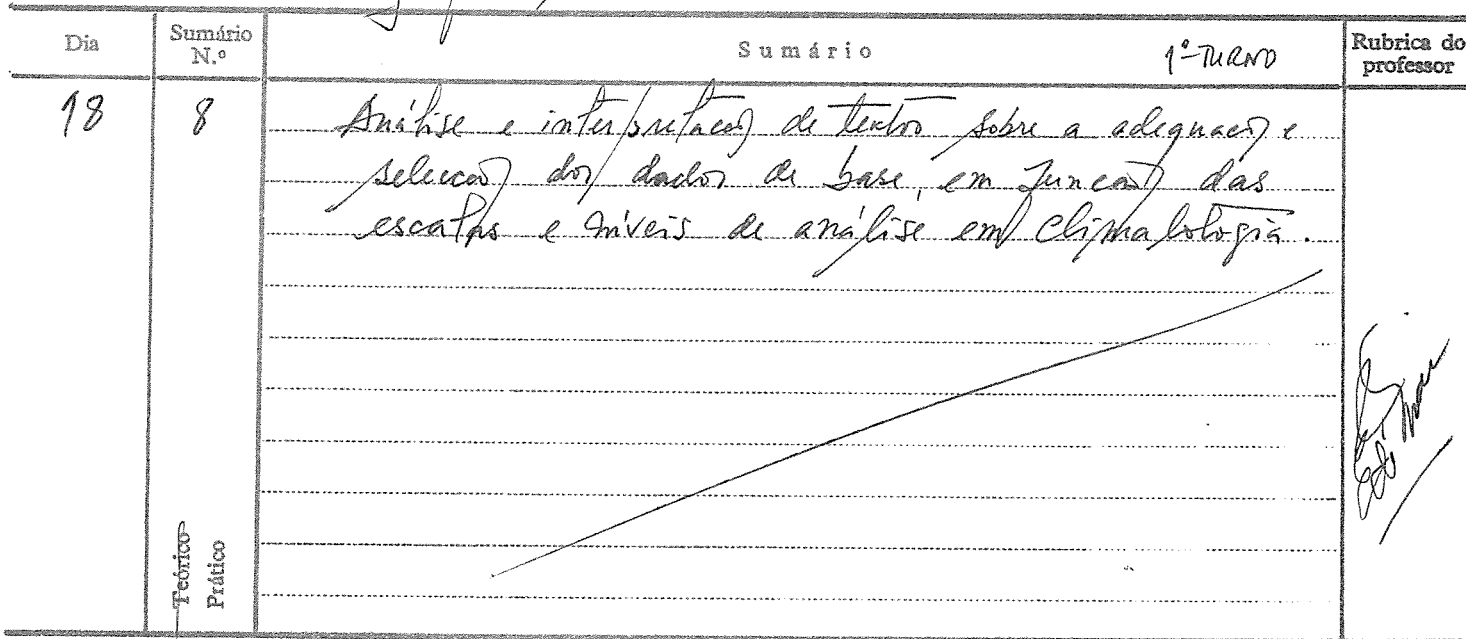 Dia
Sumário N.º
Sumário
1º-TURNO
Rubrica do professor
18
8
Análise e interpretação de textos sobre a adequação e
selecção dos dados de base, em função das
escalas e níveis de análise em climatologia.
Teórico
Prático